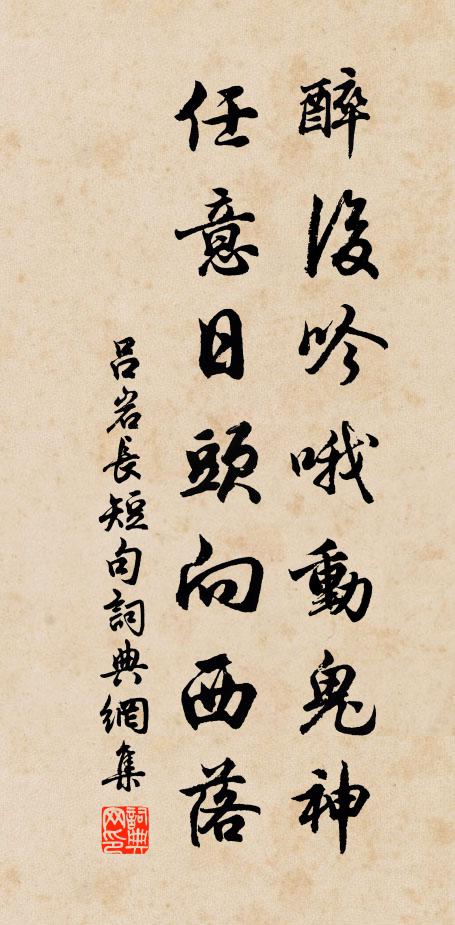 醉後吟哦動鬼神
任意日頭向西落
吕岩長短句詞典網集
詞典網印